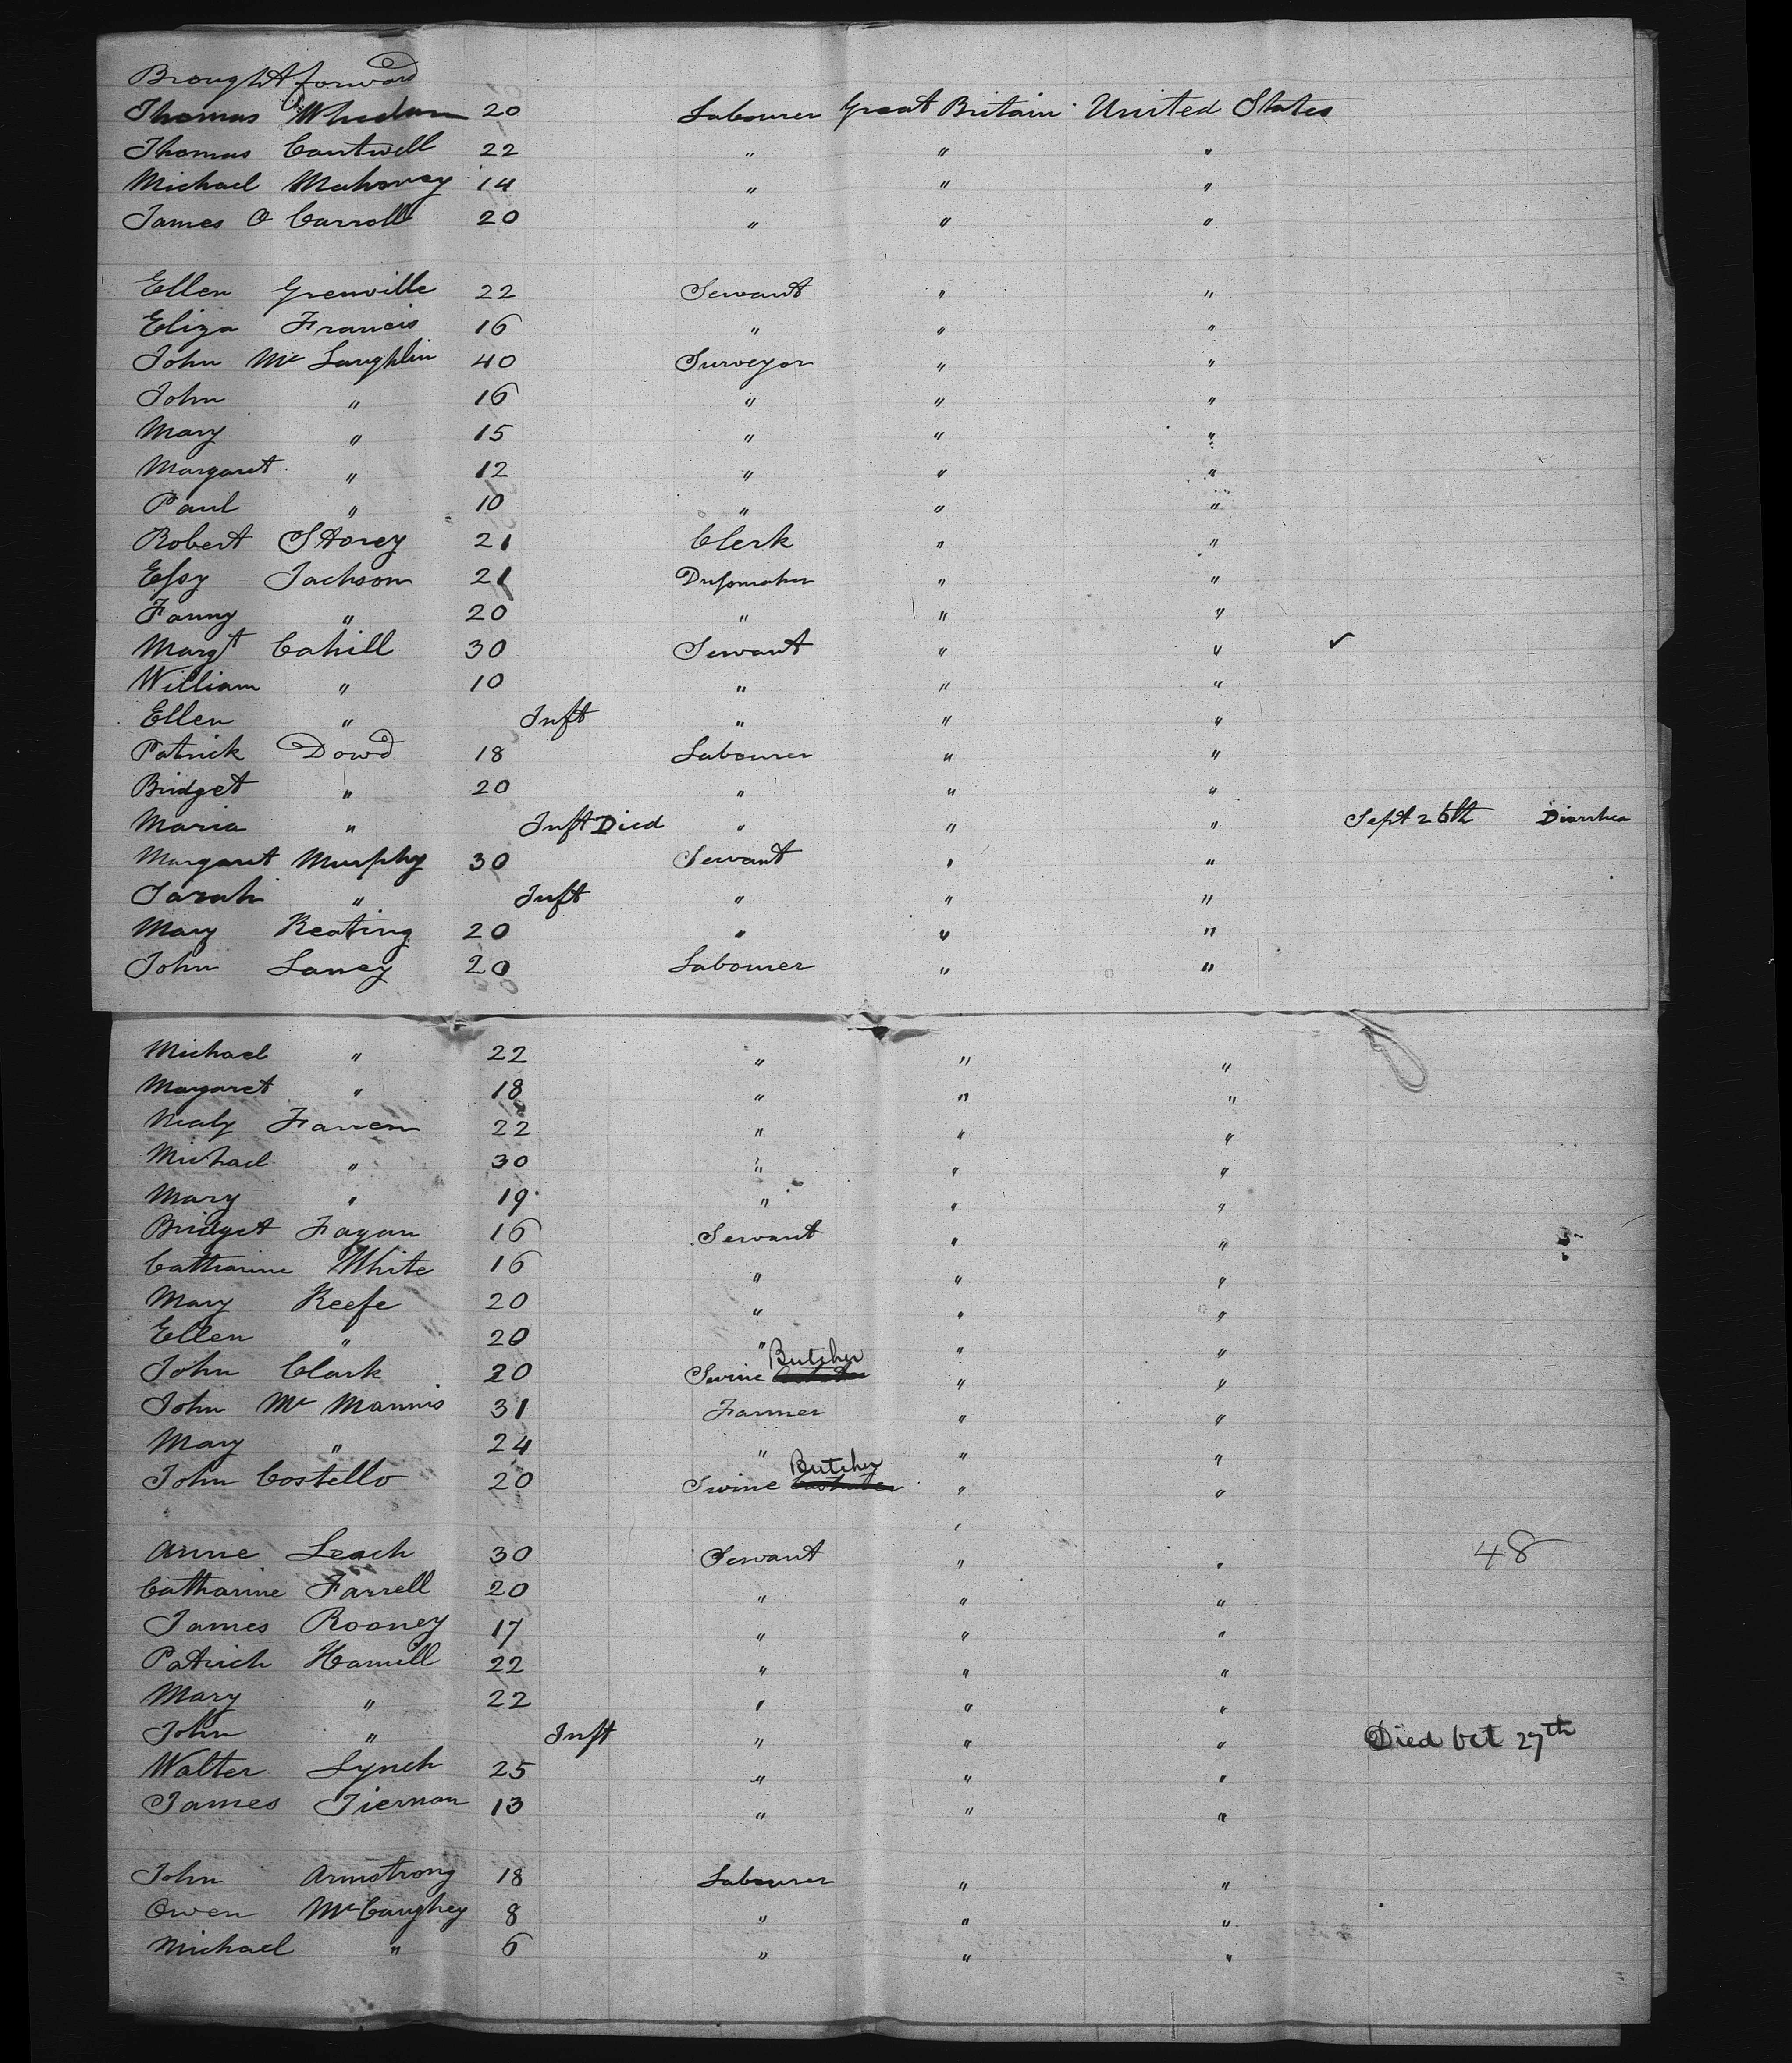 Brought forward
Thomas Whedan 20 Labourer Great Britain United States
Thomas Cantwell 22 " " "
Michael Mahoney 14 " " "
James O Carroll 20 " " "
Ellen Grenville 22 Servant " "
Eliza Francis 16 " " "
John Mc Laughlin 40 Surveyor " "
John " 16 " " "
Mary " 15 " " "
Margaret " 12 " " "
Paul " 10 " " "
Robert Storey 21 Clerk " "
Essy Jackson 21 Dressmaker " "
Fanny " 20 " " "
Margt Cahill 30 Servant " " ✓
William " 10 " " "
Ellen " Inft " " "
Patrick Dowd 18 Labourer " "
Bridget " 20 " " "
Maria " Inft Died " " " Sept 26th Diarrhea
Margaret Murphy 30 Servant " "
Sarah " Inft " " "
Mary Keating 20 " " "
John Laney 20 Labourer " "
Michael " 22 " " "
Margaret " 18 " " "
Nealy Farren 22 " " "
Michael " 30 " " "
Mary " 19 " " "
Bridget Fagan 16 Servant " "
Catharine White 16 " " "
Mary Keefe 20 " " "
Ellen " 20 " " "
John Clark 20 Swine Butcher " "
John Mc Mannis 31 Farmer " "
Mary " 24 " " "
John Costello 20 Swine Butcher " "
Anne Leach 30 Servant " " 48
Catharine Farrell 20 " " "
James Rooney 17 " " "
Patrick Hamill 22 " " "
Mary " 22 " " "
John " Inft " " " Died Oct 27th
Walter Lynch 25 " " "
James Tiernan 13 " " "
John Armstrong 18 Labourer " "
Owen McCaughey 8 " " "
Michael " 6 " " "